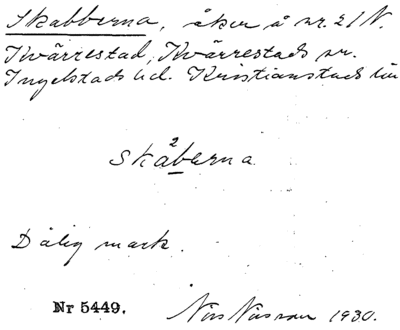 Skabberna, åker å nr. 21 N.
Kvärrestad, Kvärrestads sn.
Ingelstads hd. Kristianstads län
2
skaberna
Dålig mark.
Nr 5449. Nils Nilsson 1930.